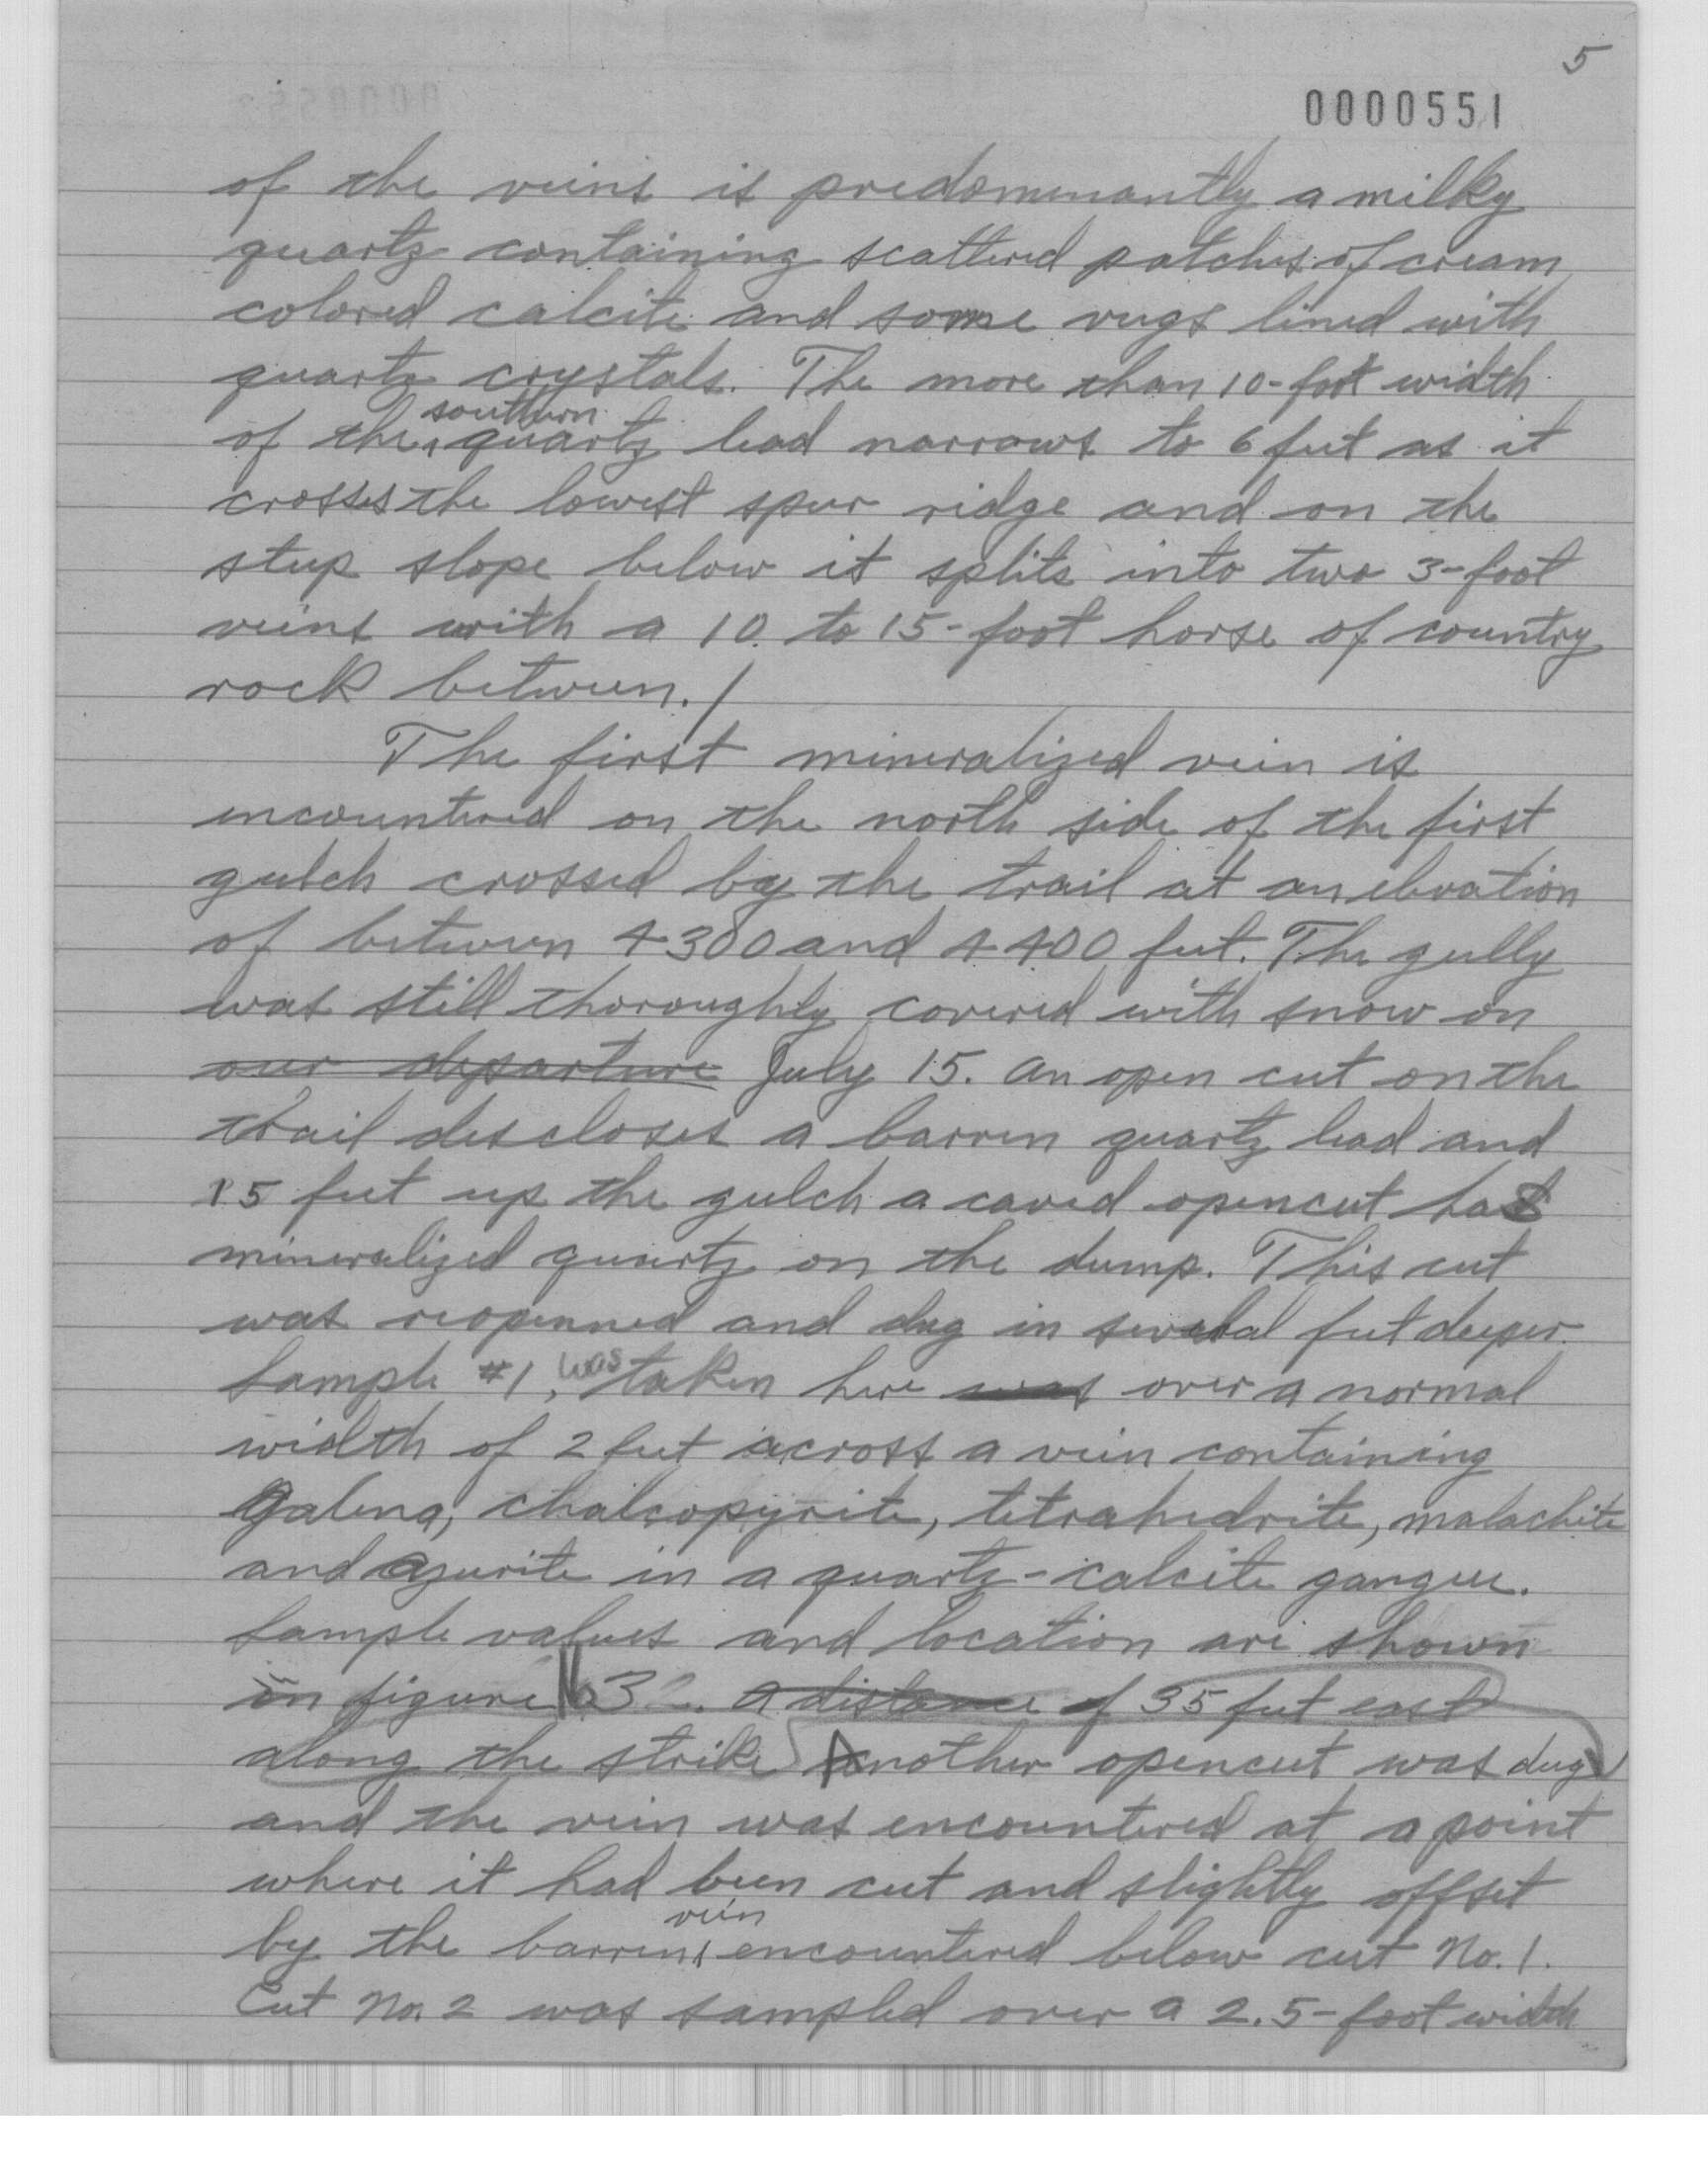 5
0000551
of the veins is predominantly a milky
quartz containing scattered patches of cream
colored calcite and some vugs lined with
quartz crystals. The more than 10-foot width
southern
of the quartz lead narrows to 6 feet as it
crosses the lowest spur ridge and on the
steep slope below it splits into two 3-foot
veins with a 10 to 15-foot horse of country
rock between. /
The first mineralized vein is
encountered on the north side of the first
gulch crossed by the trail at an elevation
of between 4300 and 4400 feet. The gully
was still thoroughly covered with snow on
our departure July 15. An open cut on the
trail discloses a barren quartz lead and
15 feet up the gulch a caved opencut has
mineralized quartz on the dump. This cut
was reopenned and dug in several feet deeper.
Sample #1, was taken here was over a normal
width of 2 feet across a vein containing
Galena, chalcopyrite, tetrahedrite, malachite
and azurite in a quartz-calcite gangue.
Sample values and location are shown
in figure 3. A distance of 35 feet east
along the strike Another opencut was dug
and the vein was encountered at a point
where it had been cut and slightly offset
vein
by the barren encountered below cut No. 1.
Cut No. 2 was sampled over a 2.5-foot width